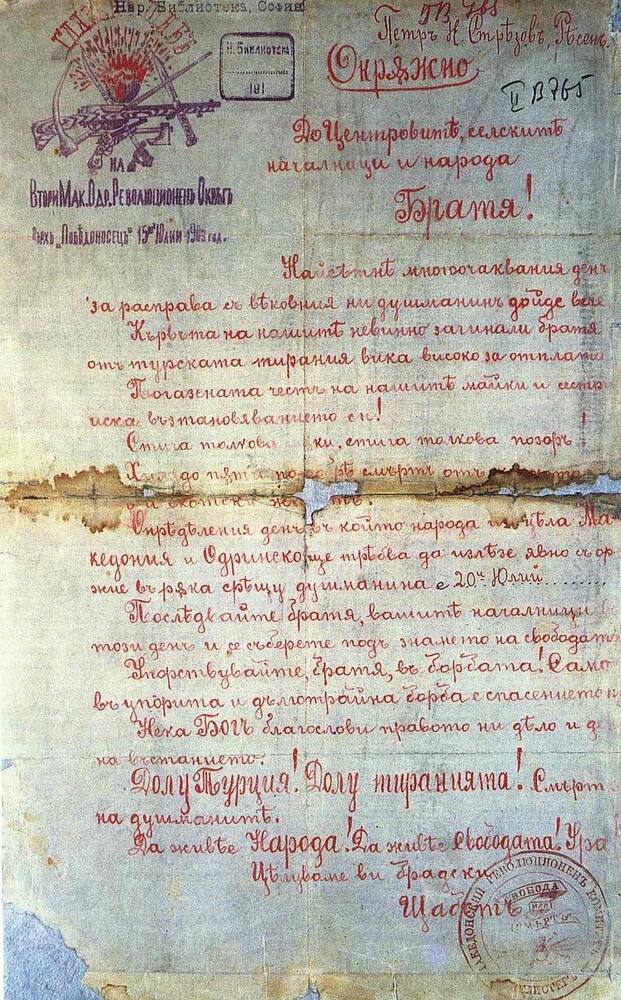 Нар. Библиотека, София
IIB 765
Петръ Н. Стрѣзовъ, Рѣсенъ
Н. Библиотека
181
Окрѫжно
II B 765
ГЛАВЕНЪ ЩАБЪ
НА
Втори Мак. Одр. Революционенъ Окрѫгъ
Върхъ „Побѣдоносецъ" 15й Юлий 1903 год.
До Центровитѣ, селскитѣ
началници и народа
Братя!
Найсѣтнѣ многоочаквания день
за расправа съ вѣковния ни душманинъ дойде вече
Кървьта на нашитѣ невинно загинали братя
отъ турската тирания вика високо за отплата
Погазената честь на нашитѣ майки и сестри
иска възтановяванието си!
Стига толкова мѫки, стига толкова позоръ!
до пѫти по-добрѣ смърть отъ
и скотски животъ.
Опрѣдѣления день въ който народа изъ цѣла Ма-
кедония и Одринско ще трѣбва да излѣзе явно съ орѫ-
жие въ рѫка срѣщу душманина е 20й Юлий.......
Послѣдвайте братя, вашитѣ началници въ
този день и се съберете подъ знамето на свободата
Упорствувайте, братя, въ борбата! Само
въ упорита и дълготрайна борба е спасението ни
Нека БОГЪ благослови правото ни дѣло и деня
на въстанието.
Долу Турция! Долу тиранията! Смърть
на душманитѣ.
Да живѣе Народа! Да живѣе Свободата! Ура
Цѣлуваме ви братски
Щабътъ
МАКЕДОНСКИЙ РЕВОЛЮЦИОНЕНЪ КОМИТЕТЪ
СВОБОДА
ИЛИ
СМЪРТЬ